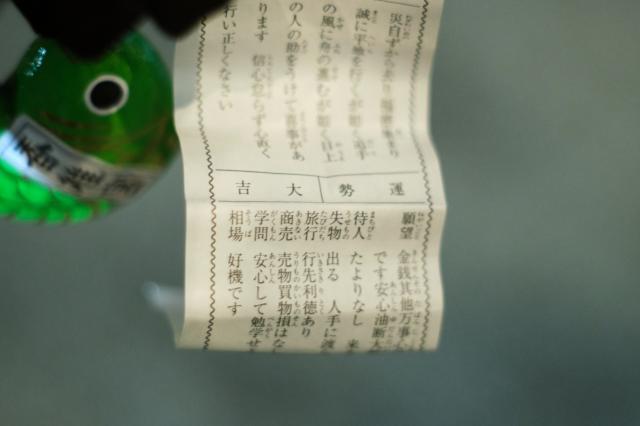 災自ずから去り福徳集まり
誠に平地を行くが如く追手
の風に舟の進むが如く目上
の人の助をうけて喜事があ
ります 信心怠らず心直く
行い正しくなさい
運勢 大吉
願望 金銭其他万事心
です安心油断大
待人 たよりなし 来
失物 出る 人手に渡
旅行 行先利徳あり
商売 売物買物損はな
学問 安心して勉学せ
相場 好機です